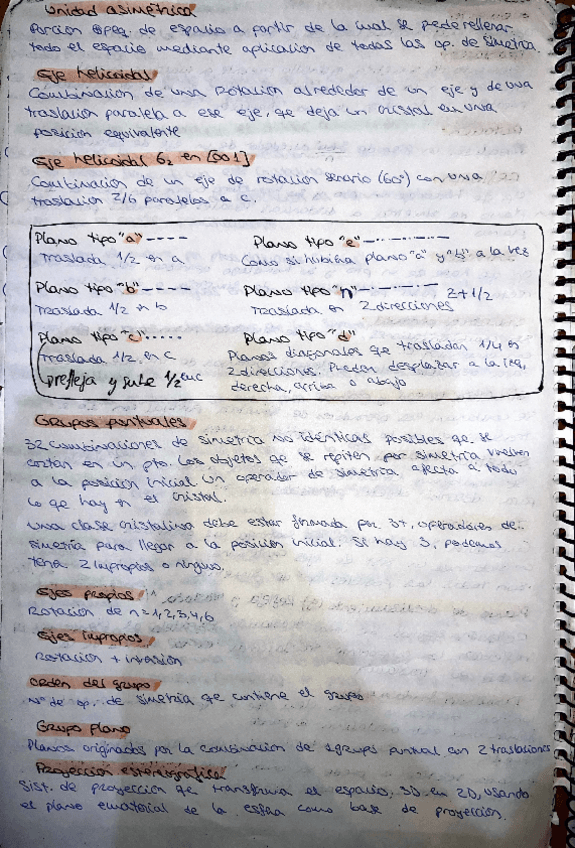 Unidad asimétrica
Porción peq. de espacio a partir de la cual se puede rellenar
todo el espacio mediante aplicación de todas las op. de simetría.
Eje helicoidal
Combinación de una rotación alrededor de un eje y de una
traslación paralela a ese eje, qe deja un cristal en una
posición equivalente
Eje helicoidal 6₂ en [001]
Combinación de un eje de rotación senario (60º) con una
traslación 2/6 paralelas a c.
Plano tipo "a" ----
Traslada 1/2 en a
Plano tipo "b" ----
Traslada 1/2 en b
Plano tipo "c" .....
Traslada 1/2 en c
refleja y sube 1/2 en c
Plano tipo "e" -..-..-..-
Como si hubiera plano "a" y "b" a la vez
Plano tipo "n" -.-.-.- z+1/2
Traslada en 2 direcciones
Plano tipo "d"
Planos diagonales qe trasladan 1/4 en
2 direcciones. Pueden desplazar a la izq,
derecha, arriba o abajo
Grupos puntuales
32 combinaciones de simetría no idénticas posibles qe se
cortan en un pto. Los objetos qe se repiten por simetría vuelven
a la posición inicial. Un operador de simetría afecta a todo
lo qe hay en el cristal.
Una clase cristalina debe estar formada por 3+, operadores de
simetría para llegar a la posición inicial. Si hay 3, podemos
tener 2 impropios o ninguno.
Ejes propios
Rotación de n=1,2,3,4,6
Ejes impropios
Rotación + inversión
Orden del grupo
Nº de op. de simetría qe contiene el grupo
Grupo plano
Planos originados por la combinación de 1 grupo puntual con 2 traslaciones
Proyección estereográfica
Sist. de proyección qe transforma el espacio 3D en 2D, usando
el plano ecuatorial de la esfera como base de proyección.